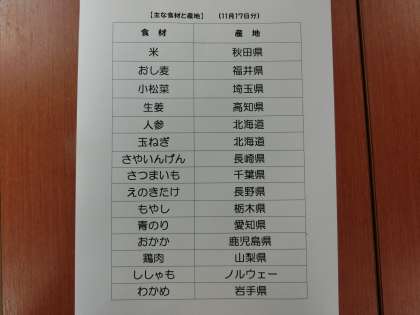 【主な食材と産地】 (11月17日分)
食材 産地
米 秋田県
おし麦 福井県
小松菜 埼玉県
生姜 高知県
人参 北海道
玉ねぎ 北海道
さやいんげん 長崎県
さつまいも 千葉県
えのきたけ 長野県
もやし 栃木県
青のり 愛知県
おかか 鹿児島県
鶏肉 山梨県
ししゃも ノルウェー
わかめ 岩手県